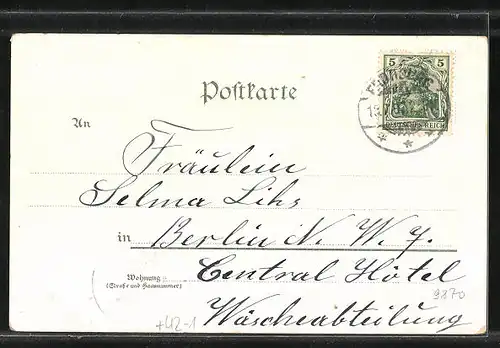 5 5
DEUTSCHES REICH
Postkarte
An
Fräulein
Selma Lihs
in Berlin N. W. 7.
Wohnung
(Straße und Hausnummer)
Central Hôtel
9870
Wäscheabteilung
+42-1